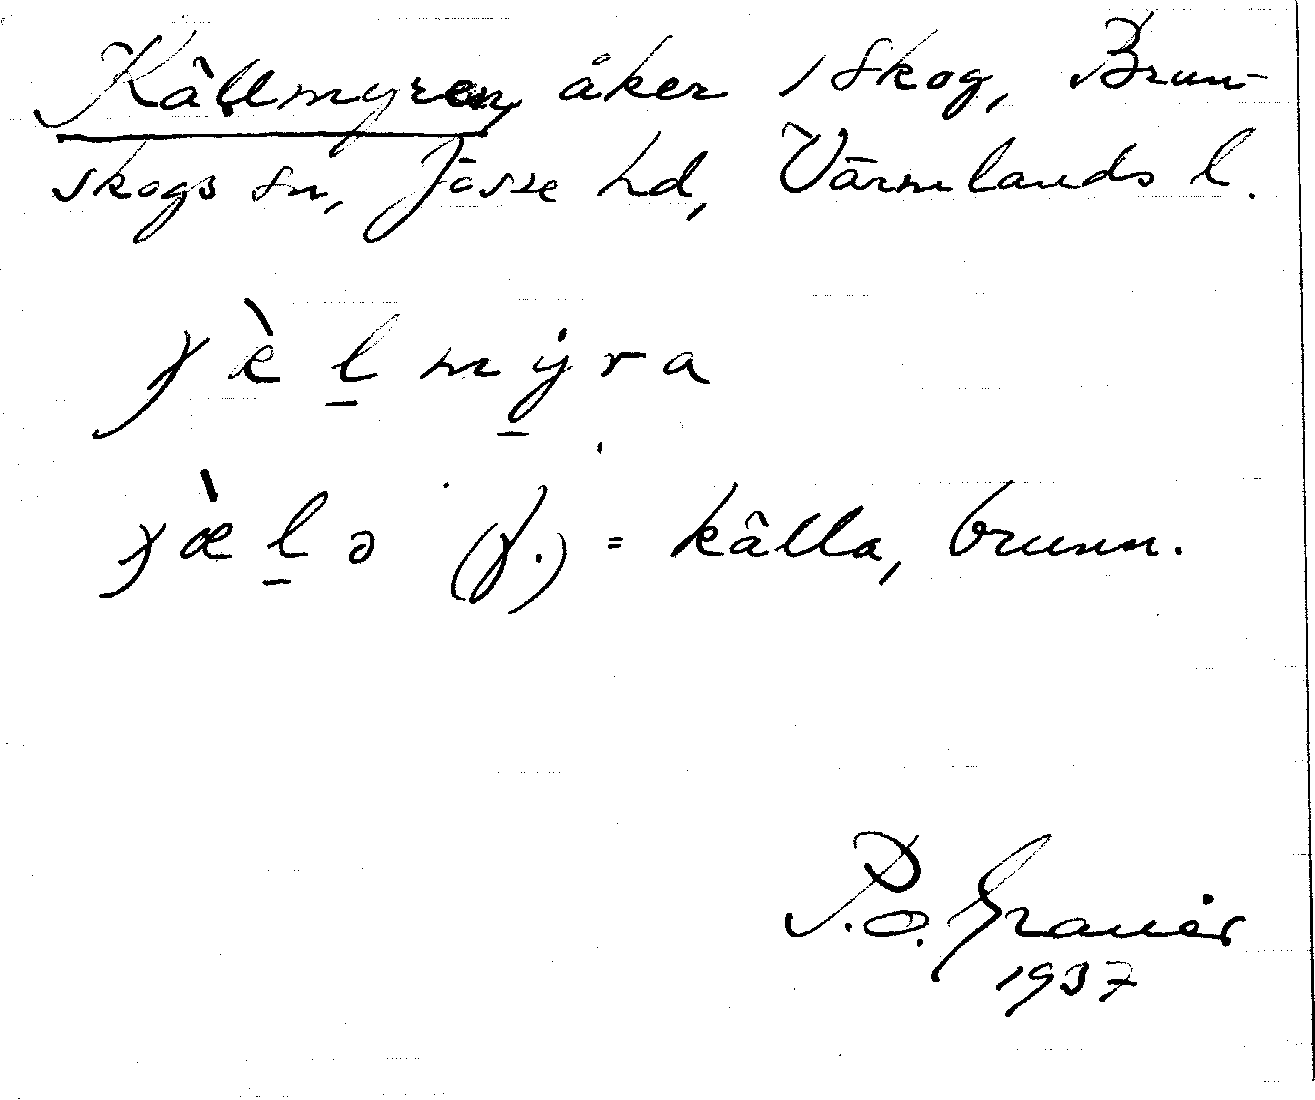 Källmyren, åker i Skog, Brun-
skogs sn, Jösse hd, Värmlands l.
ɣæ̀l̠mẏ̠ra
ɣæ̀l̠ə (f.) = källa, brunn.
P.O. Granér
1937